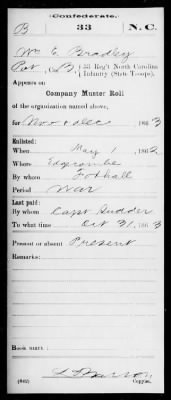 Confederate.
B 33 N.C.
Wm E. Bradley
Pvt, Co. B, 33 Reg't North Carolina Infantry (State Troops).
Appears on
Company Muster Roll
of the organization named above,
for Nov & Dec, 1863
Enlisted:
When May 1, 1862
Where Edgecombe
By whom Foxhall
Period War
Last paid:
By whom Capt Gudder
To what time Oct 31, 1863
Present or absent Present
Remarks:
Book mark:
(642) Copyist.